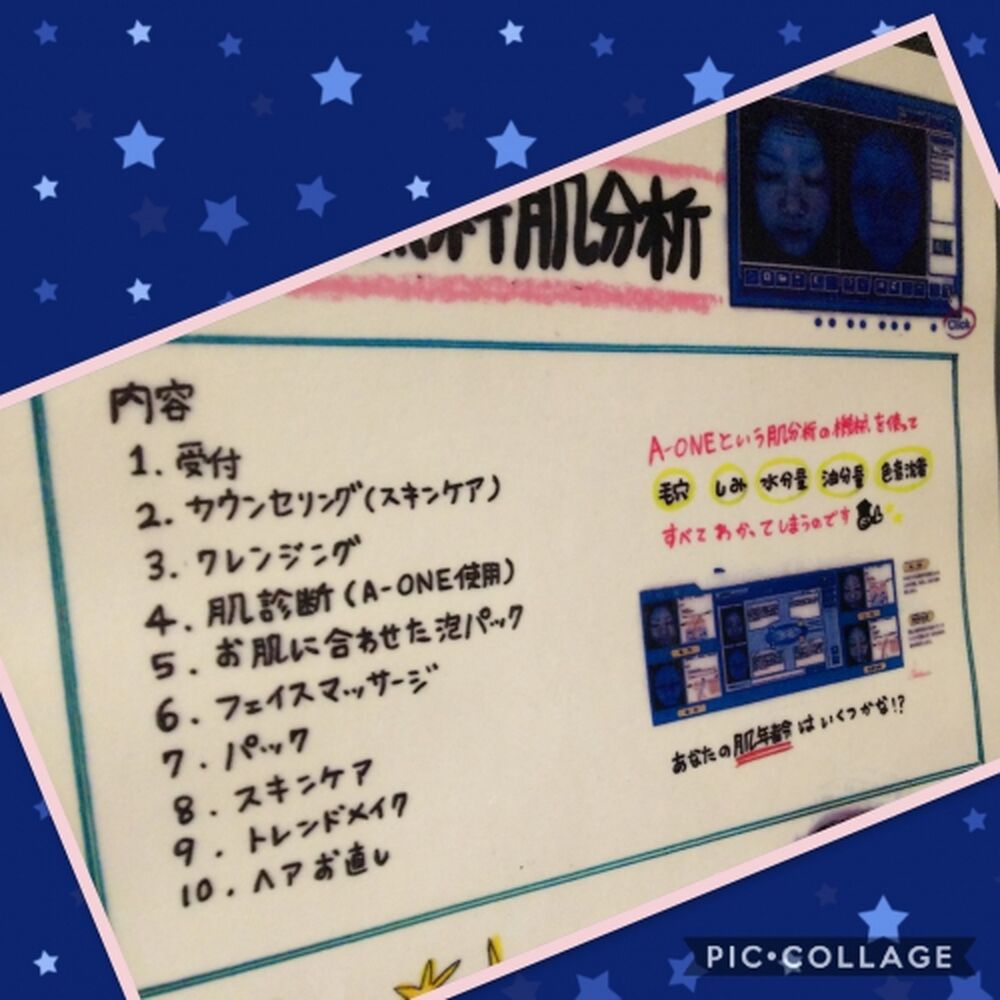 料肌分析
Click
内容
1. 受付
2. カウンセリング(スキンケア)
3. クレンジング
4. 肌診断(A-ONE使用)
5. お肌に合わせた泡パック
6. フェイスマッサージ
7. パック
8. スキンケア
9. トレンドメイク
10. ヘアお直し
A-ONEという肌分析の機械を使って
毛穴 しみ 水分量 油分量 色素沈着
すべてわかってしまうのです
あなたの肌年齢はいくつかな!?
PIC•COLLAGE